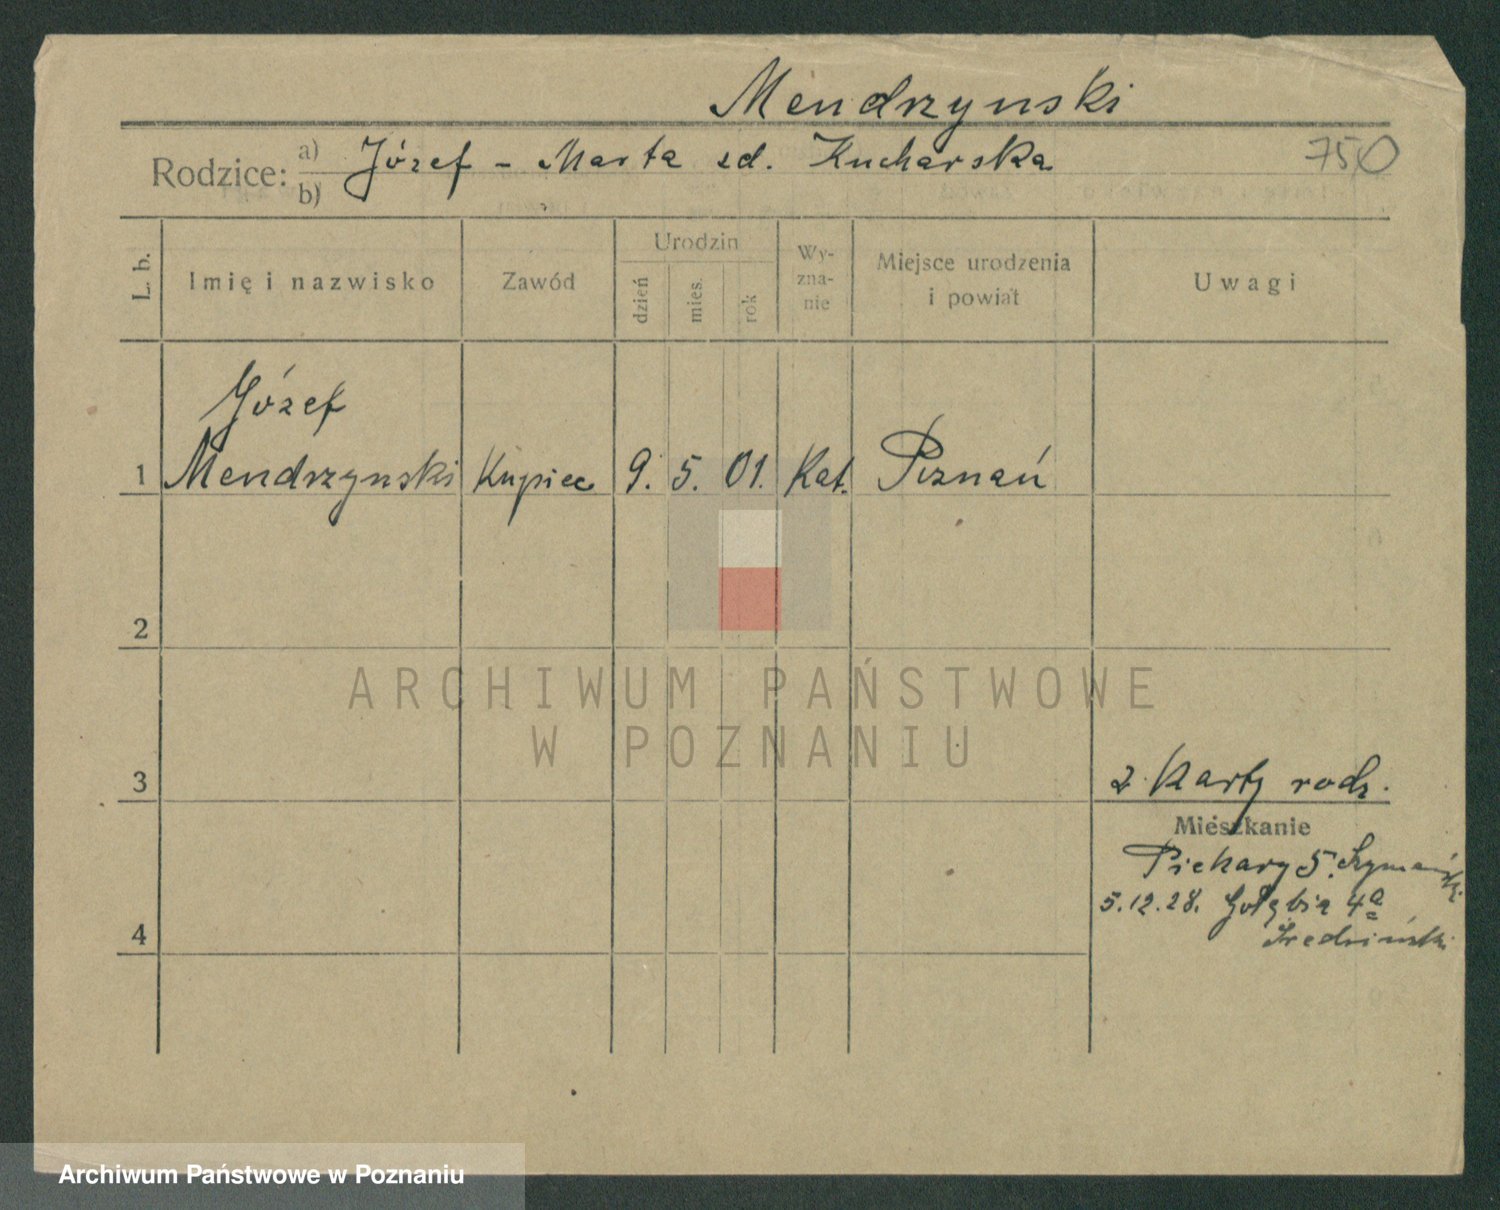 Mendrzynski
Rodzice: a) Józef - Marta zd. Kucharska 750
b)
L. b. Imię i nazwisko Zawód Urodzin dzień mies. rok Wyzna-nie Miejsce urodzenia i powiat Uwagi
Józef
1 Mendrzynski Kupiec 9. 5. 01. Kat. Poznań
2
ARCHIWUM PAŃSTWOWE
W POZNANIU
3 z Karty rodz.
Mieszkanie
Piekary 5.
5.12.28. Gołębia 4a
4
Średziński
Archiwum Państwowe w Poznaniu